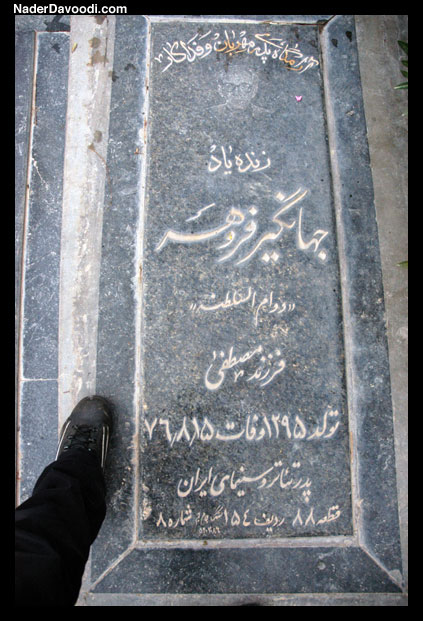 NaderDavoodi.com
هنرمند پاک مهربان و فداکار
زنده یاد
جهانگیر فروهر
«دوام السلطنه»
فرزند مصطفی
تولد ۱۲۹۵ وفات ۷۶/۸/۱۵
پدر تئاتر و سینمای ایران
قطعه ۸۸ ردیف ۱۵۴ شماره ۸